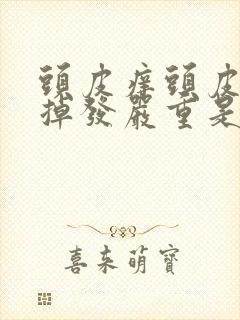 頭皮癢頭皮
掉發嚴重是
喜来萌寶